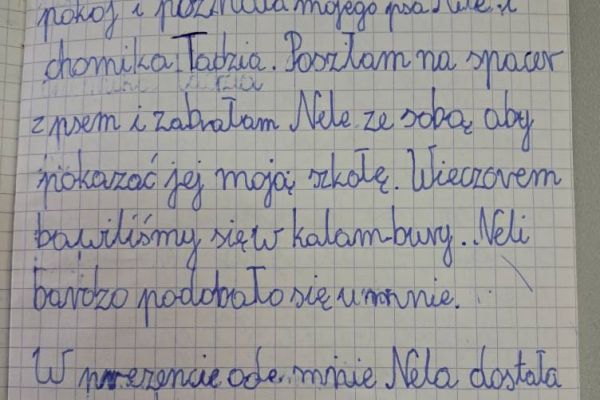 pokój i poznała mojego psa Nilę i
chomika Tadzia. Poszłam na spacer
z psem i zabrałam Nelę ze sobą aby
pokazać jej moją szkołę. Wieczorem
bawiliśmy się w kalambury.. Neli
bardzo podobało się u mnie.
W prezencie ode mnie Nela dostała